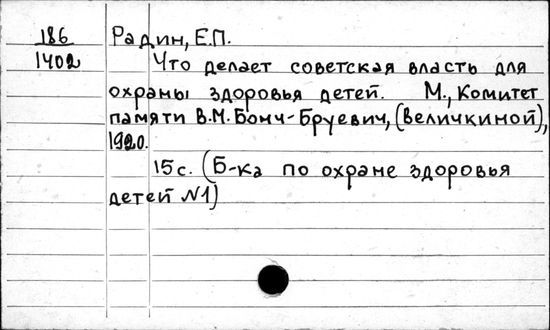 186
1402
Радин, Е.П.
Что делает советская власть для
охраны здоровья детей. М., Комитет
памяти В.М. Бонч-Бруевич, (Величкиной),
1920.
15 с. (Б-ка по охране здоровья
детей №1)